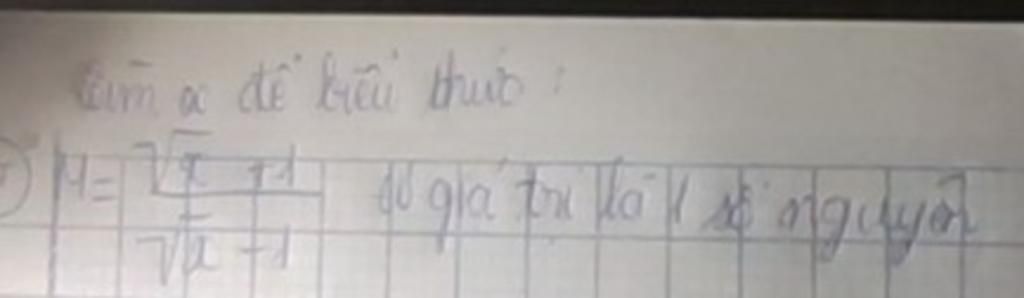 tìm x để biểu thức :
M = \frac{\sqrt{x} + 1}{\sqrt{x} - 1} có giá trị là 1 số nguyên